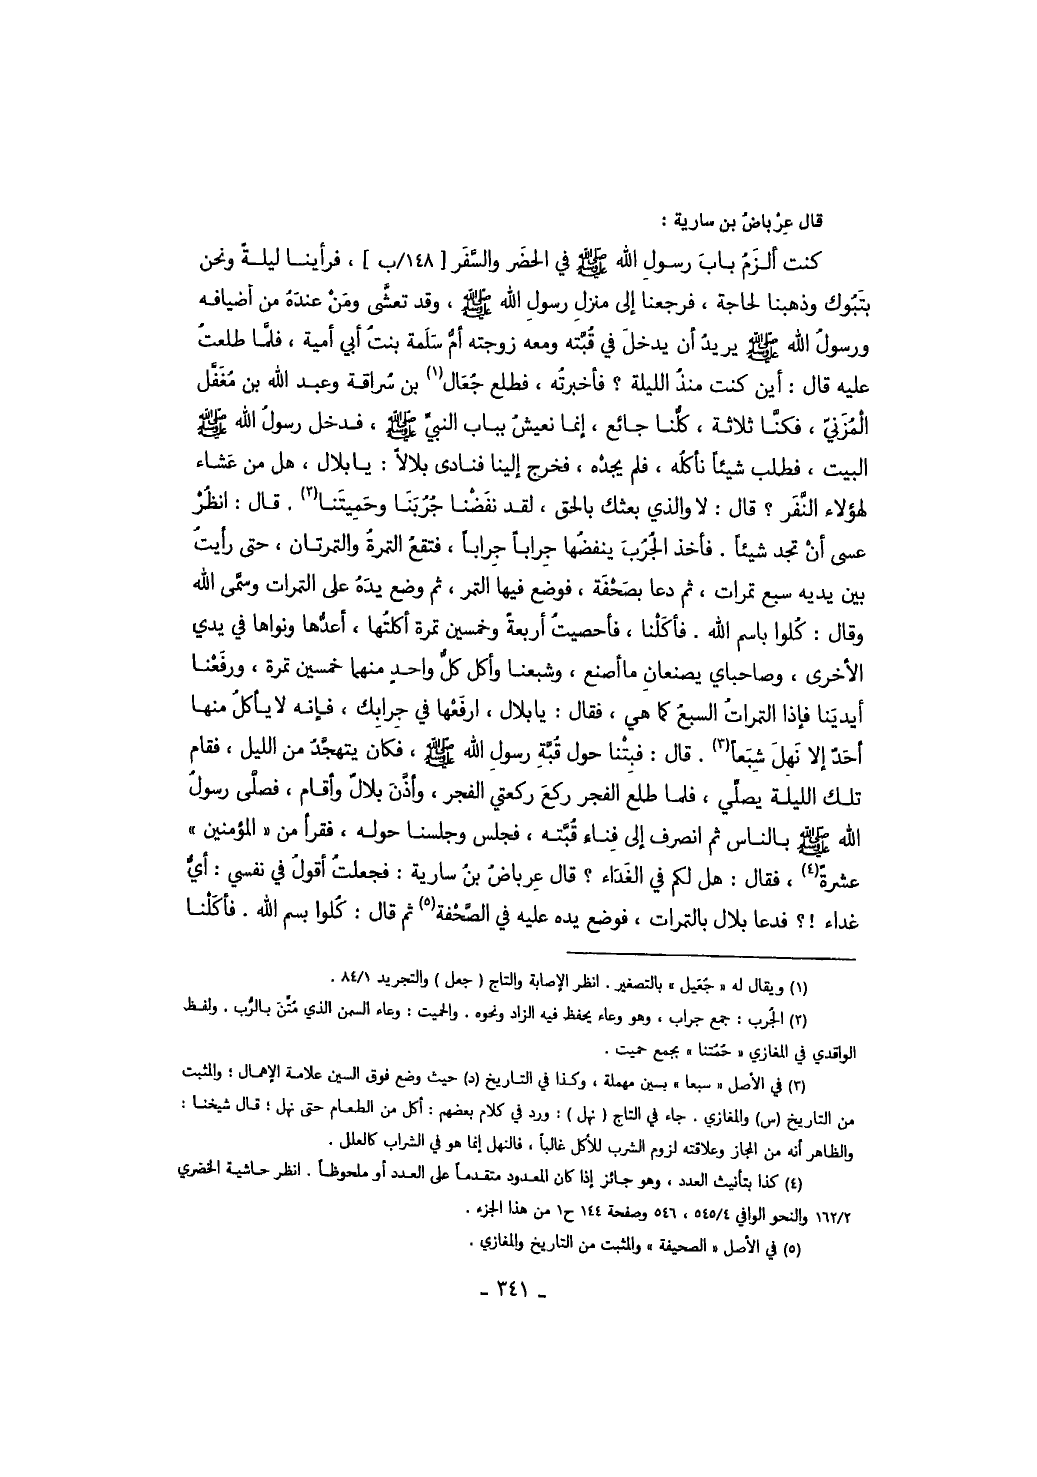 قال عِرْباضُ بن سارية :
كنت ألـزَمُ بـابَ رسـولِ الله ﷺ في الحضَر والسَّفَر [ ١٤٨/ب ] ، فرأينـا ليلـةً ونحن
بتَبُوك وذهبنـا لحاجة ، فرجعنا إلى منزلِ رسولِ الله ﷺ ، وقد تعشَّى ومَنْ عندَهُ من أضيافـه
ورسولُ الله ﷺ يريدُ أن يدخلَ في قُبَّته ومعه زوجته أمُّ سَلَمة بنتُ أبي أمية ، فلمَّا طلعتُ
عليه قال : أين كنت منذُ الليلة ؟ فأخبرتُه ، فطلع جُعَال(١) بن سُراقـة وعبـد الله بن مُغَفَّل
الْمُزَنيّ ، فكنَّـا ثلاثـة ، كلُّنـا جـائع ، إنمـا نعيشُ ببـاب النبيِّ ﷺ ، فـدخل رسولُ الله ﷺ
البيت ، فطلب شيئاً نأكلُه ، فلم يجدْه ، فخرج إلينا فنادى بلالاً : يـابلال ، هل من عَشـاء
لهؤلاء النَّفَر ؟ قال : لا والذي بعثك بالحق ، لقـد نفَضْنـا جُرُبَنَـا وحَمِيتَنـا(٢) . قـال : انظُرْ
عسى أنْ تجد شيئاً . فأخذ الجُرُبَ ينفضُها جِراباً جِراباً ، فتقعُ التمرةُ والتمرتـان ، حتى رأيتُ
بين يديه سبع تمرات ، ثم دعا بصَحْفَة ، فوضع فيها التمر ، ثم وضع يدَهُ على التمرات وسمَّى الله
وقال : كُلوا باسم الله . فأكَلْنا ، فأحصيتُ أربعةً وخمسين تمرة أكلتُها ، أعدُّها ونواها في يدي
الأخرى ، وصاحباي يصنعانِ ماأصنع ، وشبعنـا وأكل كلُّ واحـدٍ منهما خمسين تمرة ، ورفَعْنـا
أيديَنا فإذا التمراتُ السبعُ كما هي ، فقال : يابلال ، ارفَعْها في جِرابِك ، فـإنـه لايـأكلُ منهـا
أحَدٌ إلا نَهِلَ شِبَعاً(٣) . قال : فبِتْنا حول قُبَّةِ رسولِ الله ﷺ ، فكان يتهجَّدُ من الليل ، فقام
تلـك الليلـة يصلِّي ، فلمـا طلع الفجر ركعَ ركعتي الفجر ، وأذَّنَ بلالٌ وأقـام ، فصلَّى رسولُ
الله ﷺ بـالنـاس ثم انصرف إلى فِناء قُبَّتـه ، فجلس وجلسنـا حولـه ، فقرأ من « المؤمنين »
عشرةً(٤) ، فقال : هل لكم في الغَدَاء ؟ قال عِرباضُ بنُ سارية : فجعلتُ أقولُ في نفسي : أيُّ
غداء !؟ فدعا بلال بالتمرات ، فوضع يده عليه في الصَّحْفة(٥) ثم قال : كُلوا بسم الله . فأكَلْنـا
(١) ويقال له « جُعَيل » بالتصغير . انظر الإصابة والتاج ( جعل ) والتجريد ٨٤/١ .
(٢) الجُرب : جمع جراب ، وهو وعاء يحفظ فيه الزاد ونحوه . والحميت : وعاء السمن الذي مُتِّنَ بـالرُّب . ولفـظ
الواقدي في المغازي « حُمُتنا » بجمع حميت .
(٣) في الأصل « سبعا » بسين مهملة ، وكـذا في التـاريخ (د) حيث وضع فوق السين علامـة الإهمـال ؛ والمثبت
من التاريخ (س) والمغازي . جاء في التاج ( نهل ) : ورد في كلام بعضهم : أكل من الطعـام حتى نهل ؛ قـال شيخنـا :
والظاهر أنه من المجاز وعلاقته لزوم الشرب للأكل غالباً ، فالنهل إنما هو في الشراب كالعلل .
(٤) كذا بتأنيث العدد ، وهو جائز إذا كان المعـدود متقـدمـاً على العدد أو ملحوظـاً . انظر حـاشيـة الخضري
١٦٢/٢ والنحو الوافي ٥٤٥/٤ ، ٥٤٦ وصفحة ١٤٤ ح١ من هذا الجزء .
(٥) في الأصل « الصحيفة » والمثبت من التاريخ والمغازي .
- ٣٤١ -